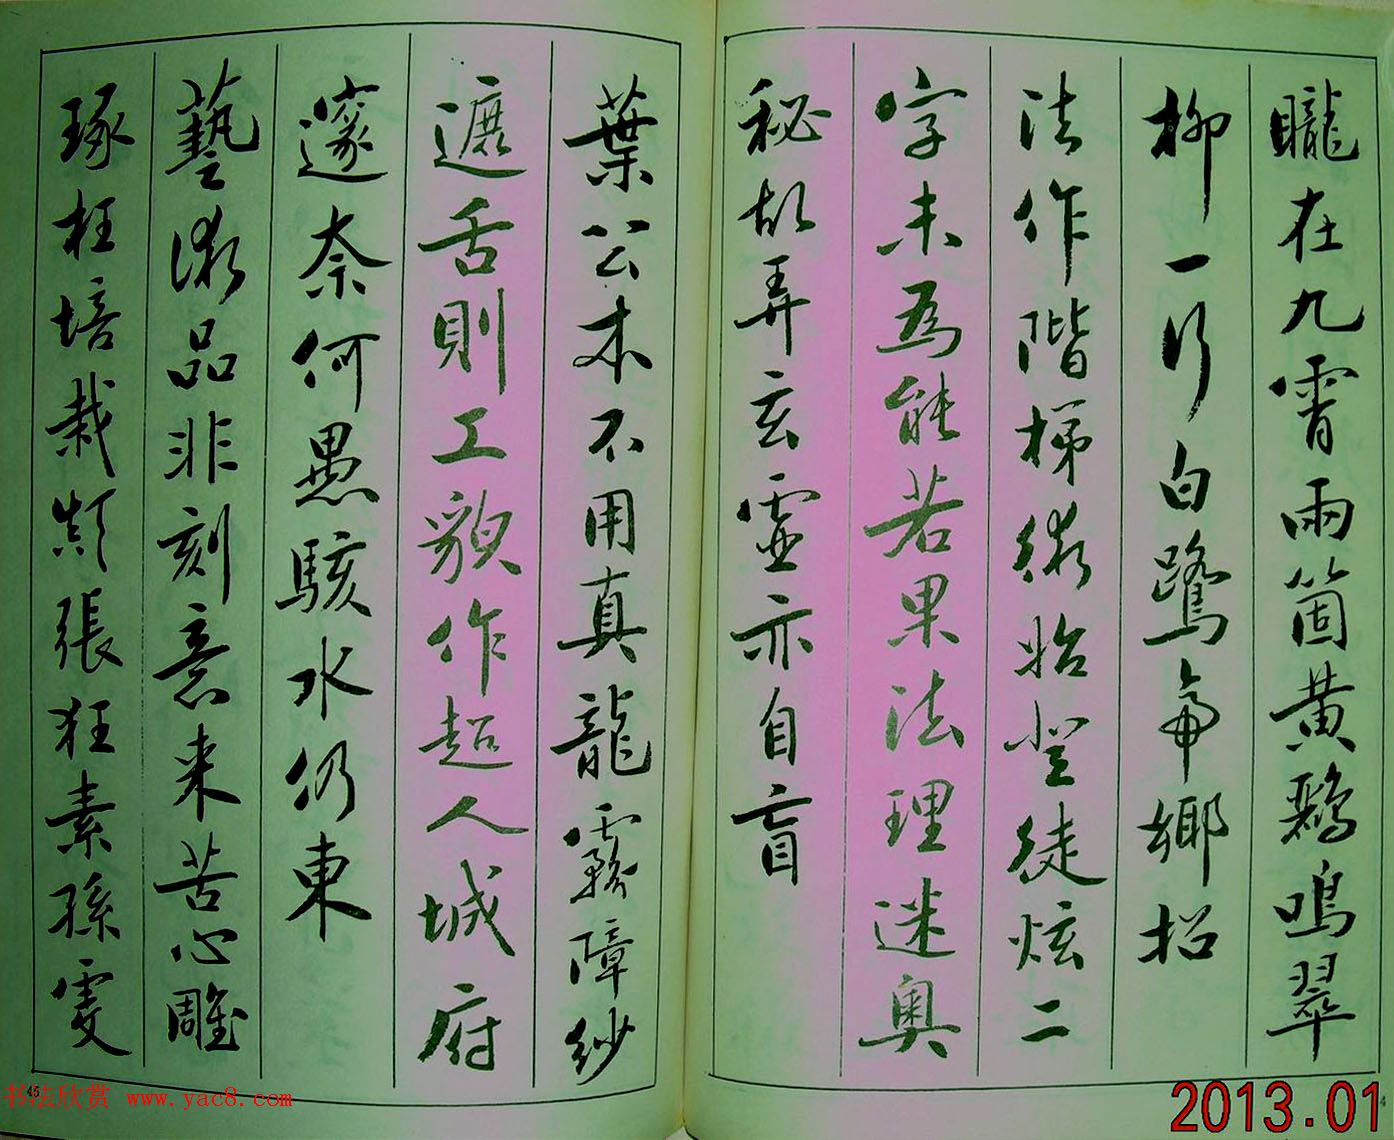 朧在九霄雨箇黄鸝鳴翠
柳一行白鷺争鄉招
法作階梯術始登徒炫二
字未為能若果法理迷奥
秘故弄玄虚亦自盲
葉公本不用真龍霧障紗
遮舌則工貌作超人城府
邃奈何愚駭水仍東
藝術品非刻意来苦心雕
琢枉培栽顛張狂素孫虔
45
书法欣赏 www.yac8.com
2013.01